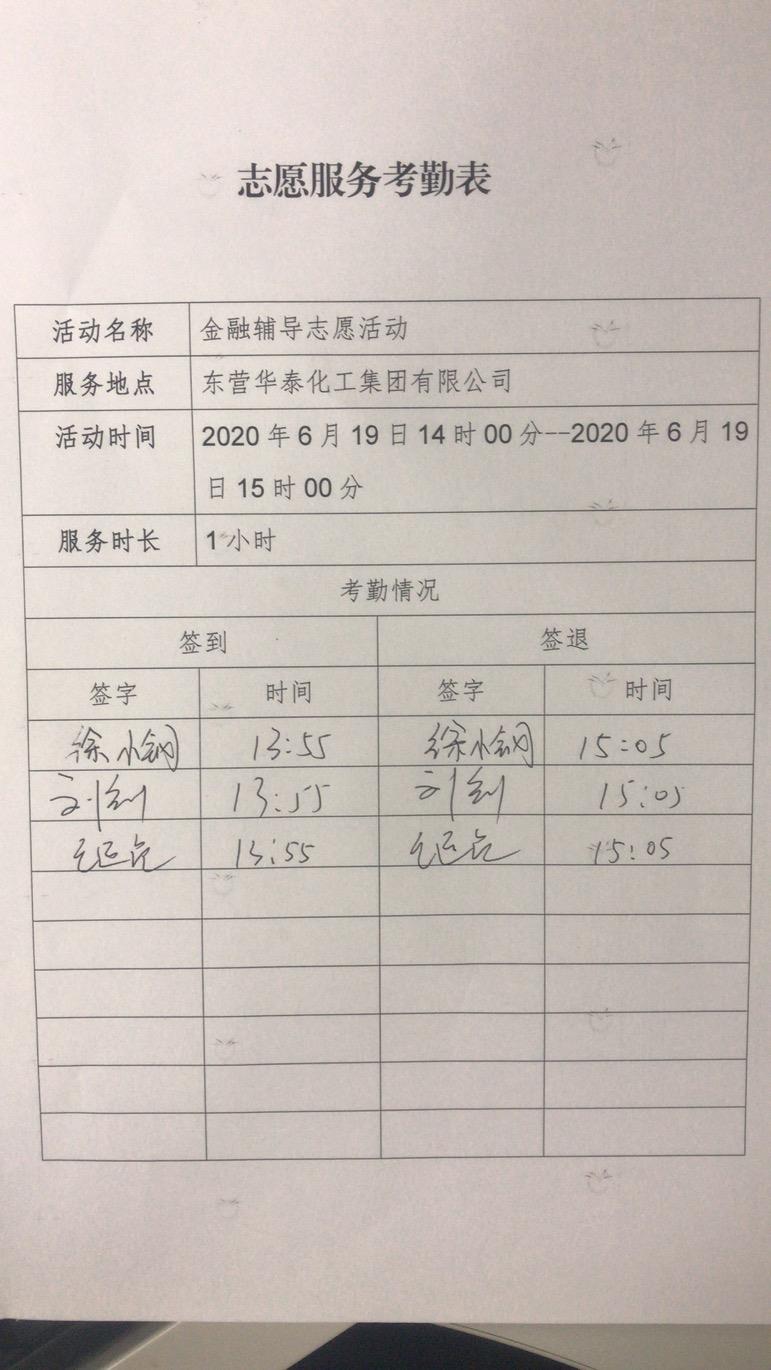 志愿服务考勤表
活动名称 金融辅导志愿活动
服务地点 东营华泰化工集团有限公司
活动时间 2020年6月19日14时00分--2020年6月19
日15时00分
服务时长 1小时
考勤情况
签到 签退
签字 时间 签字 时间
徐小钢 13:55 徐小钢 15:05
刘剑 13:55 刘剑 15:05
13:55 15:05